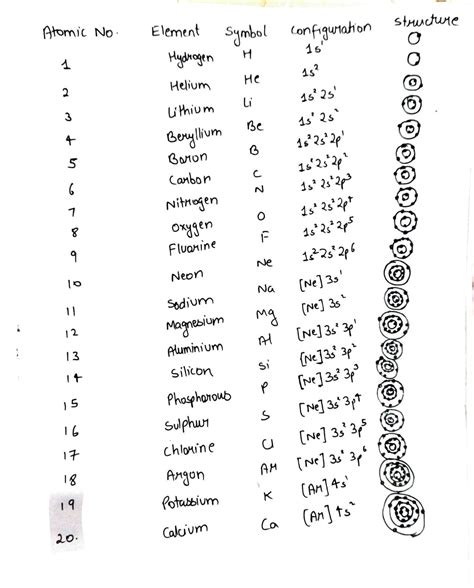 Atomic No. Element Symbol Configuration Structure
1 Hydrogen H 1s¹
2 Helium He 1s²
3 Lithium Li 1s² 2s¹
4 Beryllium Be 1s² 2s²
5 Boron B 1s² 2s² 2p¹
6 Carbon C 1s² 2s² 2p²
7 Nitrogen N 1s² 2s² 2p³
8 Oxygen O 1s² 2s² 2p⁴
9 Fluorine F 1s² 2s² 2p⁵
10 Neon Ne 1s² 2s² 2p⁶
11 Sodium Na [Ne] 3s¹
12 Magnesium Mg [Ne] 3s²
13 Aluminium Al [Ne] 3s² 3p¹
14 Silicon Si [Ne] 3s² 3p²
15 Phosphorous P [Ne] 3s² 3p³
16 Sulphur S [Ne] 3s² 3p⁴
17 Chlorine Cl [Ne] 3s² 3p⁵
18 Argon Ar [Ne] 3s² 3p⁶
19 Potassium K [Ar] 4s¹
20. Calcium Ca [Ar] 4s²